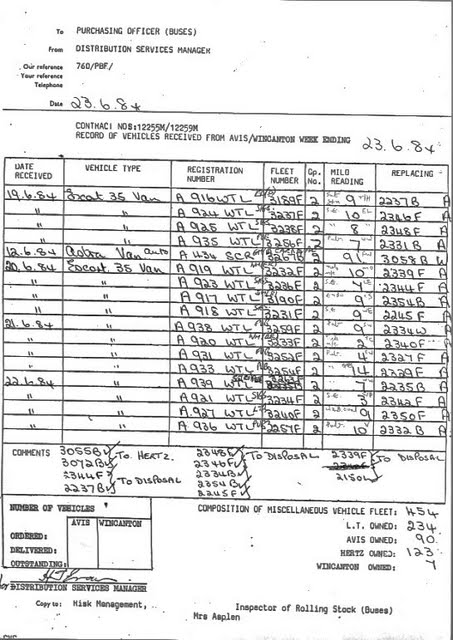 To PURCHASING OFFICER (BUSES)
From DISTRIBUTION SERVICES MANAGER
Our reference 760/PBF/
Your reference
Telephone
Date 23.6.84
CONTRACT NOS:12255M/12259M
RECORD OF VEHICLES RECEIVED FROM AVIS/WINCANTON WEEK ENDING 23.6.84
DATE RECEIVED VEHICLE TYPE REGISTRATION NUMBER FLEET NUMBER Gp. No. MILO READING REPLACING
19.6.84 Escort 35 Van A 916 WTL 3189F 2 9 2237B A
" " A 924 WTL 3237F 2 10 2346F A
" " A 925 WTL 3238F 2 8 2348F A
" " A 935 WTL 3256F 2 7 2331B A
12.6.84 Astra Van auto A 434 2 91 3058B W
20.6.84 Escort 35 Van A 919 WTL 3232F 2 10 2339F A
" " A 923 WTL 3236F 2 4 2344F A
" " A 917 WTL 3190F 2 9 2354B A
" " A 918 WTL 3231F 2 9 2245F A
21.6.84 " A 938 WTL 3259F 2 9 2334W A
" " A 920 WTL 3233F 2 2 2340F A
" " A 931 WTL 3252F 2 4 2327F A
" " A 933 WTL 3254F 2 14 2329F A
22.6.84 " A 939 WTL 2 7 2235B A
" " A 921 WTL 3234F 2 3 2342F A
" " A 927 WTL 3240F 2 9 2350F A
" " A 936 WTL 3257F 2 10 2332B A
COMMENTS 3055B To HERTZ. 2348F To DISPOSAL 2339F To DISPOSAL
3072B 2346F
2344F To DISPOSAL 2334B 2150W
2237B 2354B
2245F
NUMBER OF VEHICLES
AVIS WINCANTON
ORDERED:
DELIVERED:
OUTSTANDING:
COMPOSITION OF MISCELLANEOUS VEHICLE FLEET: 454
L.T. OWNED: 234
AVIS OWNED: 90
HERTZ OWNED: 123
WINCANTON OWNED: 7
DISTRIBUTION SERVICES MANAGER
Copy to: Risk Management,
Inspector of Rolling Stock (Buses)
Mrs Asplen